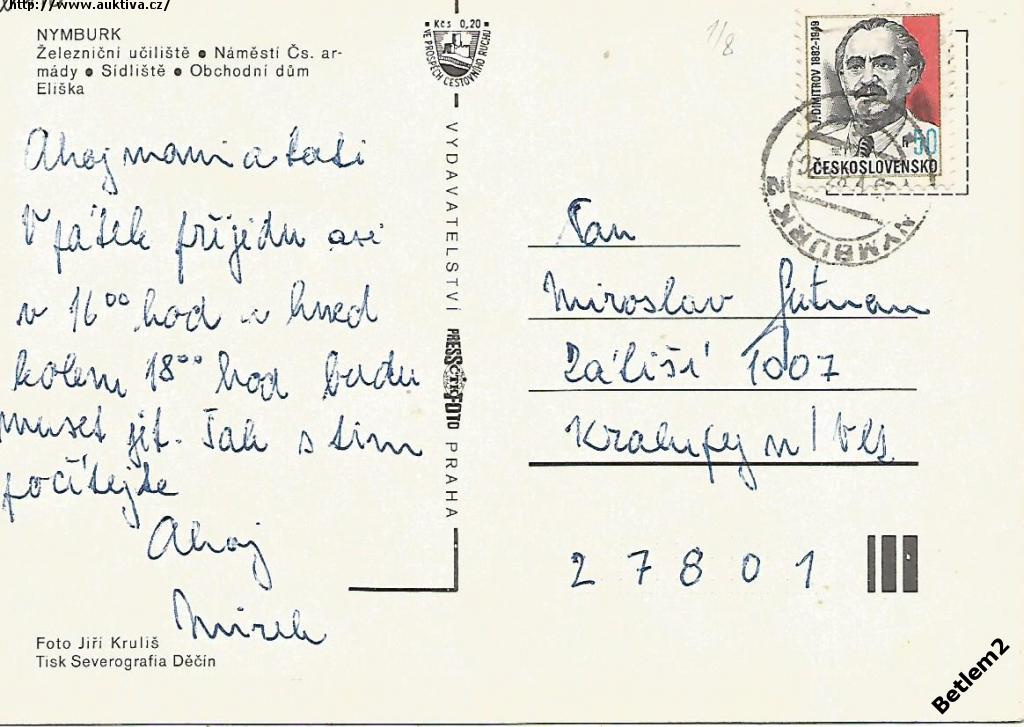 http://www.auktiva.cz/
NYMBURK
Železniční učiliště • Náměstí Čs. ar-
mády • Sídliště • Obchodní dům
Eliška
Ahoj mami a tati
V pátek příjedu asi
v 16⁰⁰ hod a hned
kolem 18⁰⁰ hod budu
muset jít. Tak s tím
počítejte
Ahoj
Mirek
Foto Jiří Kruliš
Tisk Severografia Děčín
Kčs 0,20
VE PROSPĚCH CESTOVNÍHO RUCHU
VYDAVATELSTVÍ PRESSFOTO PRAHA
ČTK
1/8
J. DIMITROV 1882-1949
h 50
ČESKOSLOVENSKO
NYMBURK 2
Pan
Miroslav Gutman
Záliší 1007
Kralupy n/Vlt
27801
Betlem2